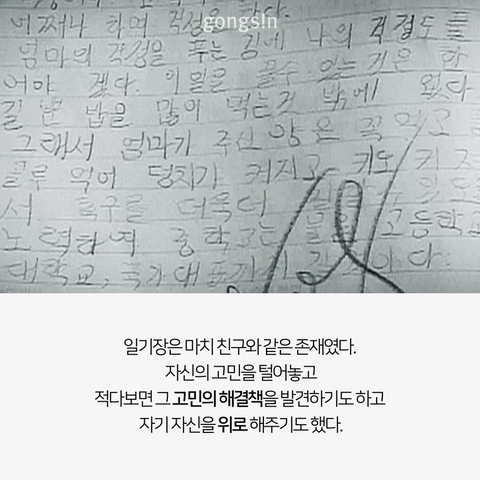 gongs!n
어쩌나 하며 걱정을 한다.
엄마의 걱정을 푸는 김에 나의 걱정도 풀
어야 겠다. 이 일을 풀수 있는것은 한
길 뿐 밥을 많이 먹는것 밖에 없다
그래서 엄마가 주신 양은 꼭 먹고
골루 먹어 덩치가 커지고 키도
서 축구를 더욱더 고등학교
노력하여 중학교는
대학교, 국가대표까지
일기장은 마치 친구와 같은 존재였다.
자신의 고민을 털어놓고
적다보면 그 고민의 해결책을 발견하기도 하고
자기 자신을 위로 해주기도 했다.